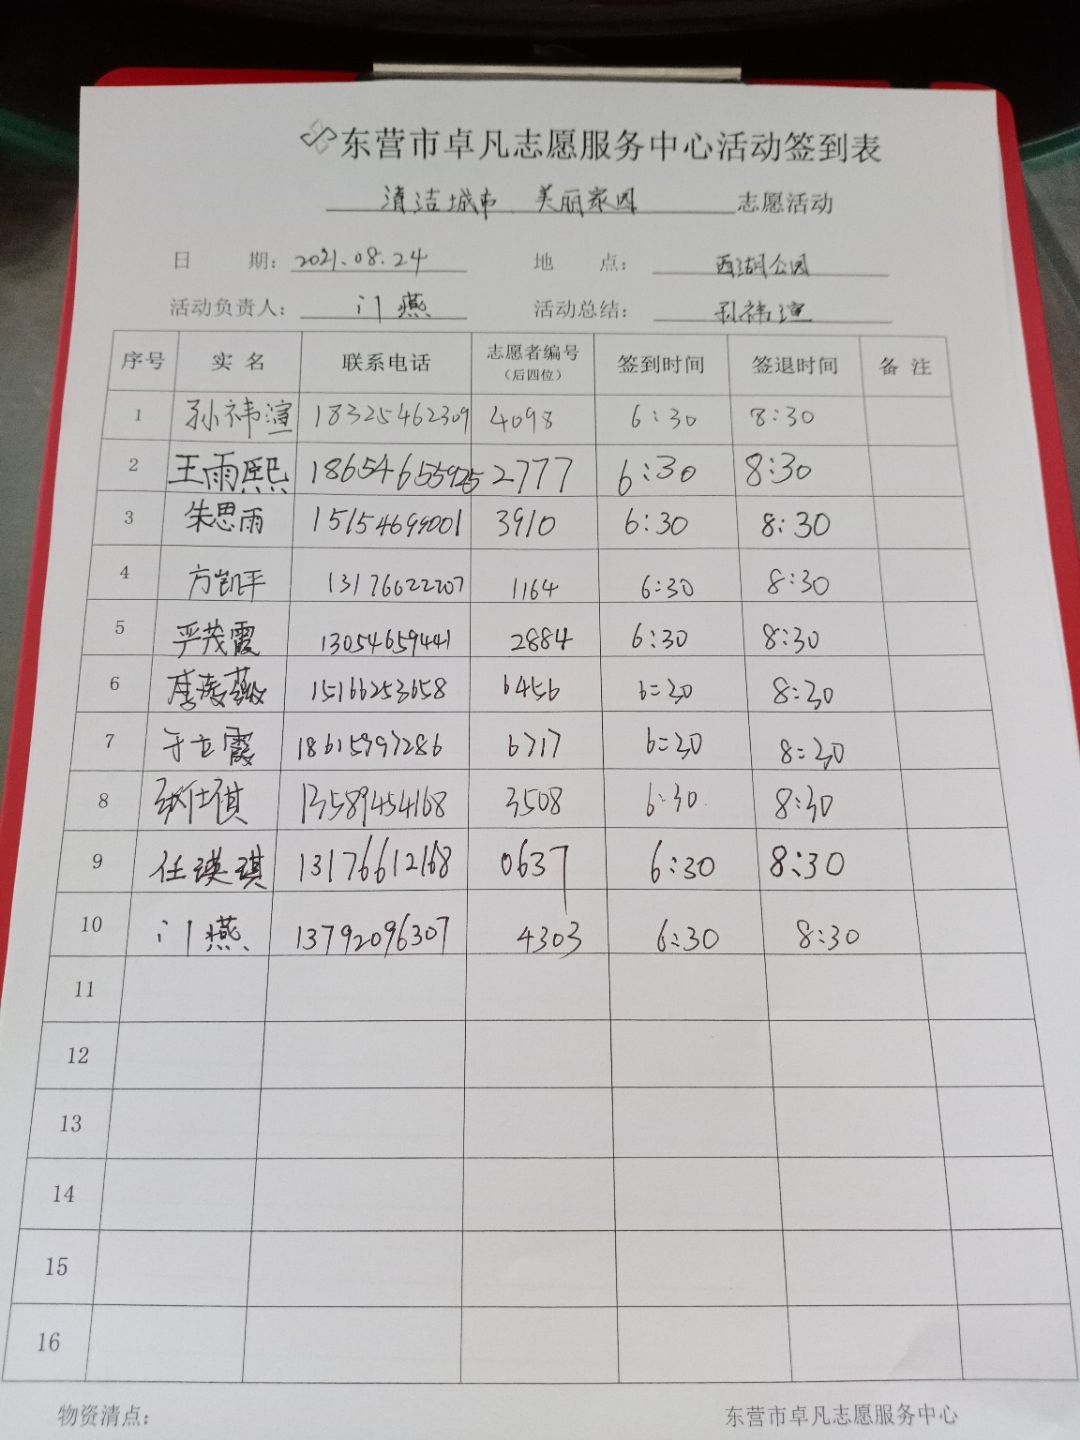 东营市卓凡志愿服务中心活动签到表
清洁城市 美丽家园 志愿活动
日 期: 2021.08.24 地 点: 西湖公园
活动负责人: 门燕 活动总结: 孙祎渲
序号 实名 联系电话 志愿者编号(后四位) 签到时间 签退时间 备注
1 孙祎渲 18325462309 4098 6:30 8:30
2 王雨熙 2777 6:30 8:30
3 朱思雨 15154699001 3910 6:30 8:30
4 方凯平 13176622207 1164 6:30 8:30
5 严茂霞 13054659441 2884 6:30 8:30
6 李凌薇 15166253658 6456 6:30 8:30
7 于立霞 18615997286 6717 6:30 8:30
8 仕祺 13589454168 3508 6:30 8:30
9 任瑛琪 13176612168 0637 6:30 8:30
10 门燕 13792096307 4303 6:30 8:30
11
12
13
14
15
16
物资清点: 东营市卓凡志愿服务中心